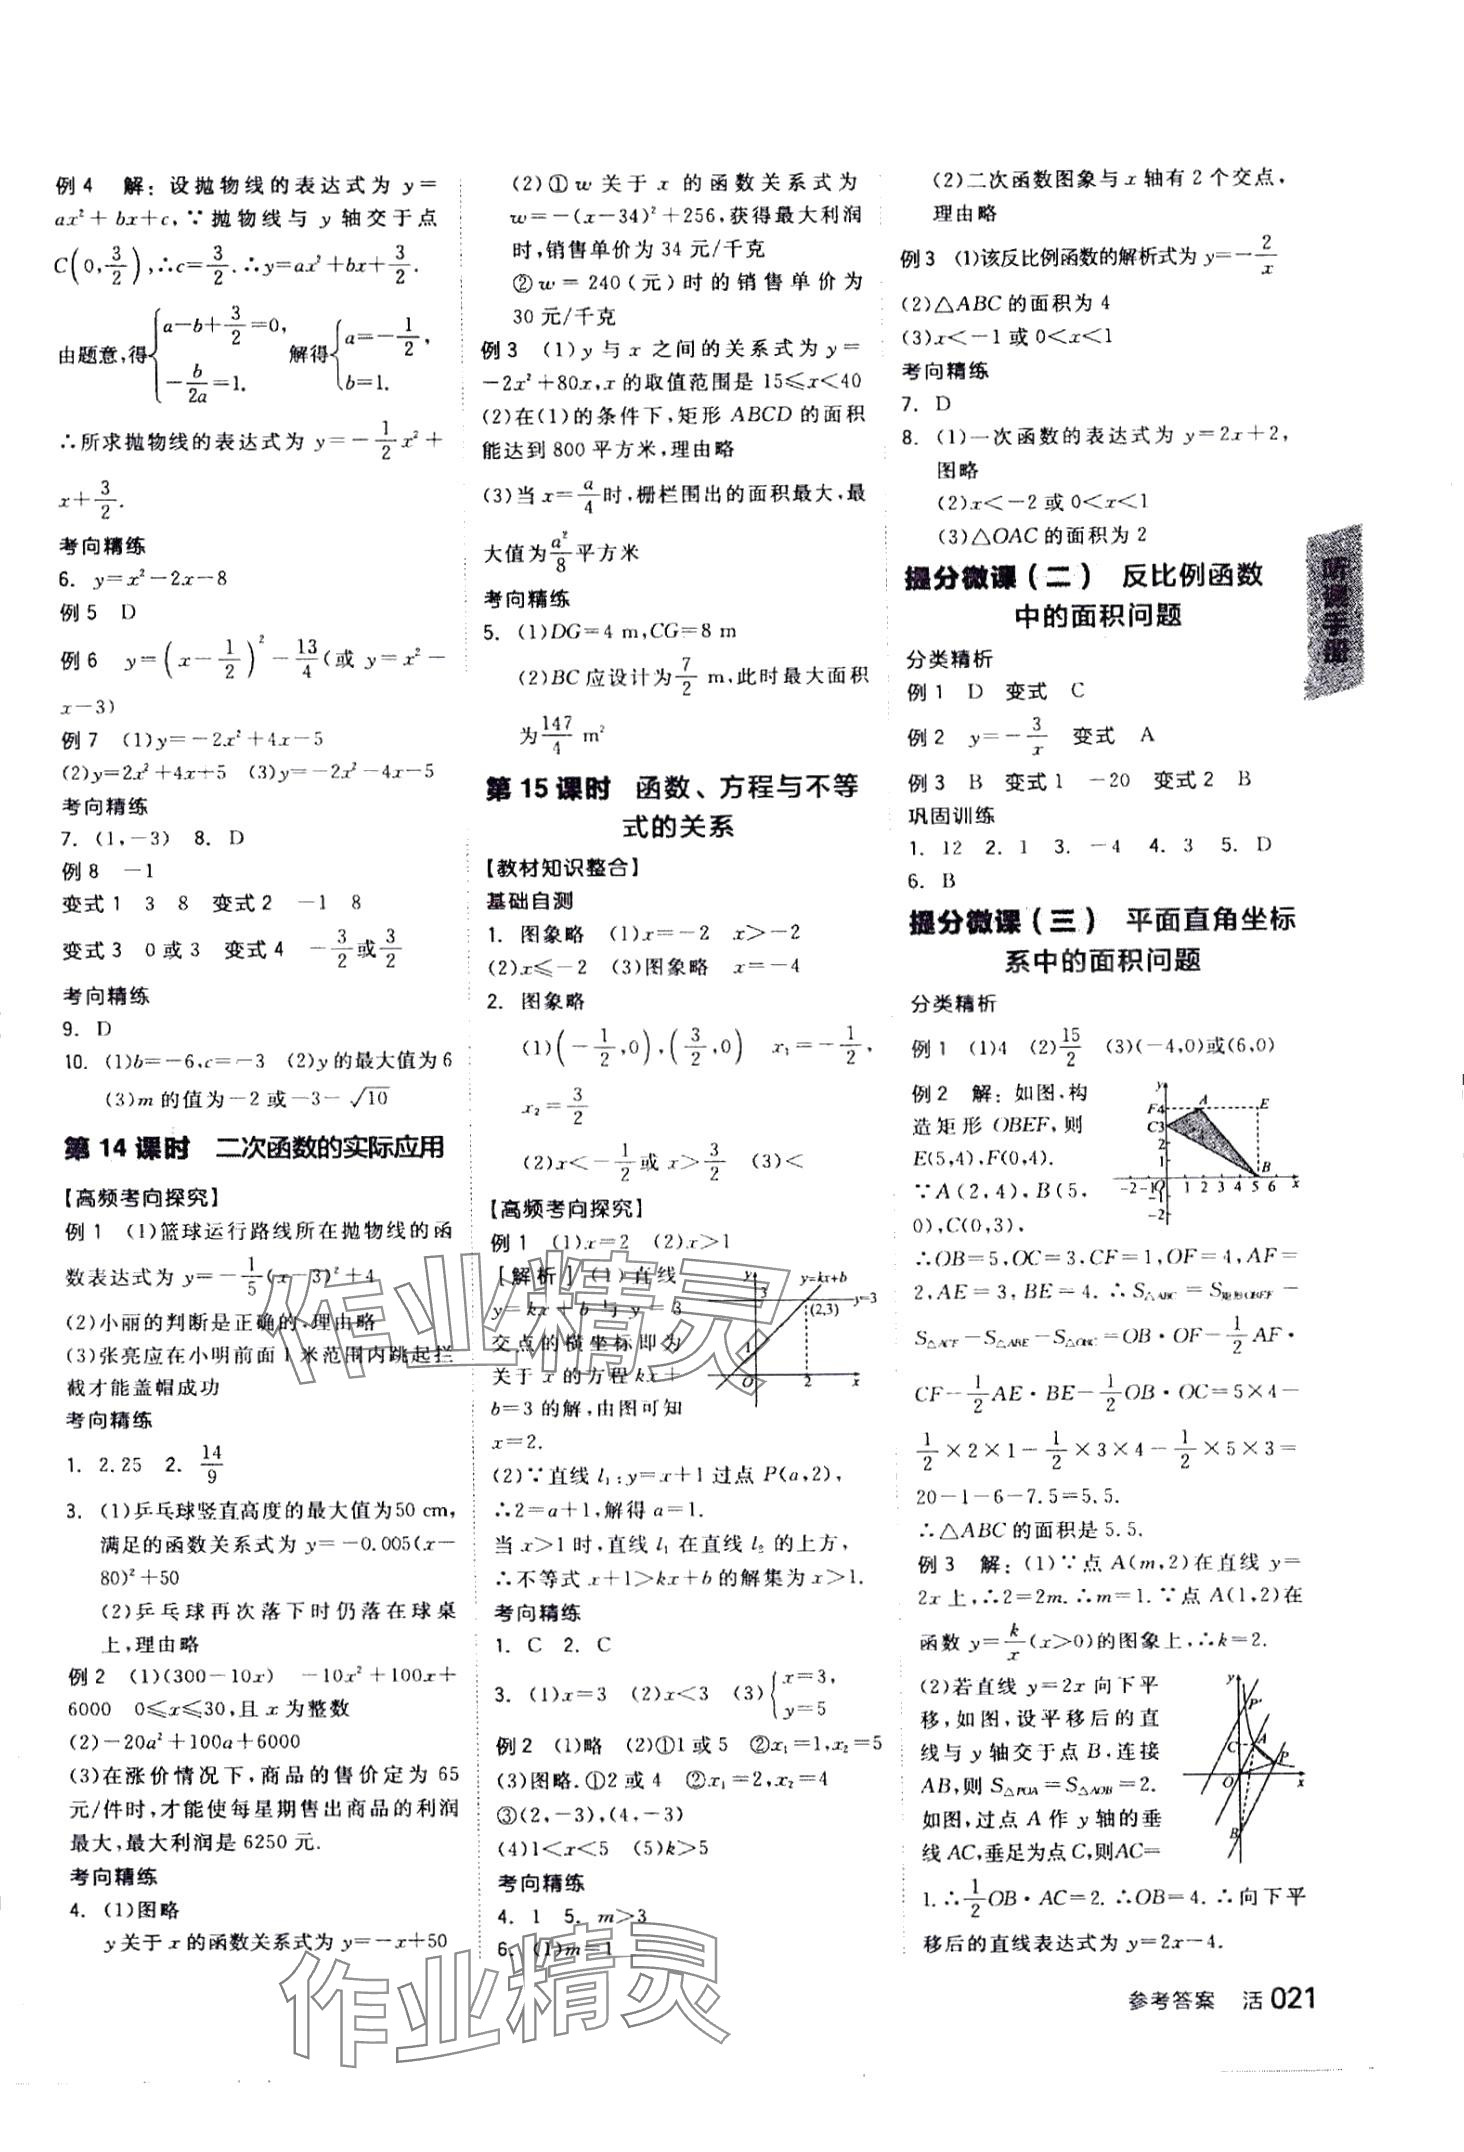 例4 解：设抛物线的表达式为 y=
ax²+bx+c,∵抛物线与 y 轴交于点
C(0,3/2),∴c=3/2.∴y=ax²+bx+3/2.
由题意,得{a-b+3/2=0, -b/2a=1. 解得{a=-1/2, b=1.
∴所求抛物线的表达式为 y=-1/2x²+
x+3/2.
考向精练
6. y=x²-2x-8
例5 D
例6 y=(x-1/2)²-13/4(或 y=x²-
x-3)
例7 (1)y=-2x²+4x-5
(2)y=2x²+4x+5 (3)y=-2x²-4x-5
考向精练
7. (1,-3) 8. D
例8 -1
变式1 3 8 变式2 -1 8
变式3 0或3 变式4 -3/2或3/2
考向精练
9. D
10. (1)b=-6,c=-3 (2)y的最大值为6
(3)m的值为-2或-3-√10
第14课时 二次函数的实际应用
【高频考向探究】
例1 (1)篮球运行路线所在抛物线的函
数表达式为 y=-1/5(x-3)²+4
(2)小丽的判断是正确的,理由略
(3)张亮应在小明前面1米范围内跳起拦
截才能盖帽成功
考向精练
1. 2.25 2. 14/9
3. (1)乒乓球竖直高度的最大值为50 cm,
满足的函数关系式为 y=-0.005(x-
80)²+50
(2)乒乓球再次落下时仍落在球桌
上,理由略
例2 (1)(300-10x) -10x²+100x+
6000 0≤x≤30,且x为整数
(2)-20a²+100a+6000
(3)在涨价情况下,商品的售价定为65
元/件时,才能使每星期售出商品的利润
最大,最大利润是6250元.
考向精练
4. (1)图略
y关于x的函数关系式为y=-x+50
(2)①w关于x的函数关系式为
w=-(x-34)²+256,获得最大利润
时,销售单价为34元/千克
②w=240(元)时的销售单价为
30元/千克
例3 (1)y与x之间的关系式为y=
-2x²+80x,x的取值范围是15≤x<40
(2)在(1)的条件下,矩形ABCD的面积
能达到800平方米,理由略
(3)当x=a/4时,栅栏围出的面积最大,最
大值为a²/8平方米
考向精练
5. (1)DG=4 m,CG=8 m
(2)BC应设计为7/2 m,此时最大面积
为147/4 m²
第15课时 函数、方程与不等
式的关系
【教材知识整合】
基础自测
1. 图象略 (1)x=-2 x>-2
(2)x≤-2 (3)图象略 x=-4
2. 图象略
(1)(-1/2,0),(3/2,0) x₁=-1/2,
x₂=3/2
(2)x<-1/2或x>3/2 (3)<
【高频考向探究】
例1 (1)x=2 (2)x>1
[解析] (1)直线
y=kx+b与y=3
交点的横坐标即为
关于x的方程kx+
b=3的解,由图可知
x=2.
y
3
y=kx+b
y=3
(2,3)
1
O
2
x
(2)∵直线l₁:y=x+1过点P(a,2),
∴2=a+1,解得a=1.
当x>1时,直线l₁在直线l₂的上方,
∴不等式x+1>kx+b的解集为x>1.
考向精练
1. C 2. C
3. (1)x=3 (2)x<3 (3){x=3, y=5
例2 (1)略 (2)①1或5 ②x₁=1,x₂=5
(3)图略.①2或4 ②x₁=2,x₂=4
③(2,-3),(4,-3)
(4)1<x<5 (5)k>5
考向精练
4. 1 5. m>3
6. (1)m=1
(2)二次函数图象与x轴有2个交点,
理由略
例3 (1)该反比例函数的解析式为y=-2/x
(2)△ABC的面积为4
(3)x<-1或0<x<1
考向精练
7. D
8. (1)一次函数的表达式为y=2x+2,
图略
(2)x<-2或0<x<1
(3)△OAC的面积为2
提分微课(二) 反比例函数
中的面积问题
分类精析
例1 D 变式 C
例2 y=-3/x 变式 A
例3 B 变式1 -20 变式2 B
巩固训练
1. 12 2. 1 3. -4 4. 3 5. D
6. B
提分微课(三) 平面直角坐标
系中的面积问题
分类精析
例1 (1)4 (2)15/2 (3)(-4,0)或(6,0)
例2 解:如图,构
造矩形OBEF,则
E(5,4),F(0,4).
∵A(2,4),B(5,
0),C(0,3),
y
F4
A
E
C3
2
1
B
-2-1O 1 2 3 4 5 6 x
-1
-2
∴OB=5,OC=3,CF=1,OF=4,AF=
2,AE=3,BE=4.∴S△ABC=S矩形OBEF-
S△ACF-S△ABE-S△OBC=OB·OF-1/2AF·
CF-1/2AE·BE-1/2OB·OC=5×4-
1/2×2×1-1/2×3×4-1/2×5×3=
20-1-6-7.5=5.5.
∴△ABC的面积是5.5.
例3 解:(1)∵点A(m,2)在直线y=
2x上,∴2=2m.∴m=1.∵点A(1,2)在
函数y=k/x(x>0)的图象上,∴k=2.
(2)若直线y=2x向下平
移,如图,设平移后的直
线与y轴交于点B,连接
AB,则S△POA=S△AOB=2.
如图,过点A作y轴的垂
线AC,垂足为点C,则AC=
y
P'
C
A
P
O
x
B
1.∴1/2OB·AC=2.∴OB=4.∴向下平
移后的直线表达式为y=2x-4.
听课手册
参考答案 活021
作业精灵
作业精灵